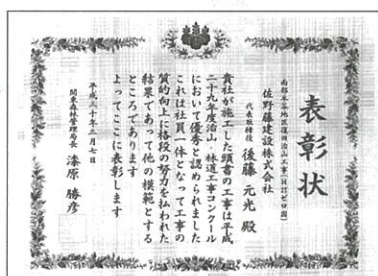 表彰状
南部木谷地区復旧治山工事(日訂ゼロ国)
佐野藤建設株式会社
代表取締役 後藤元光 殿
貴社が施工した頭書の工事は平成
二十九年度治山・林道工事コンクール
において優秀と認められました
これは社員一体となって工事の
質的向上に格段の努力を払われた
結果であって他の模範とする
ところであります
よってここに表彰します
平成三十年三月七日
関東森林管理局長 漆原勝彦